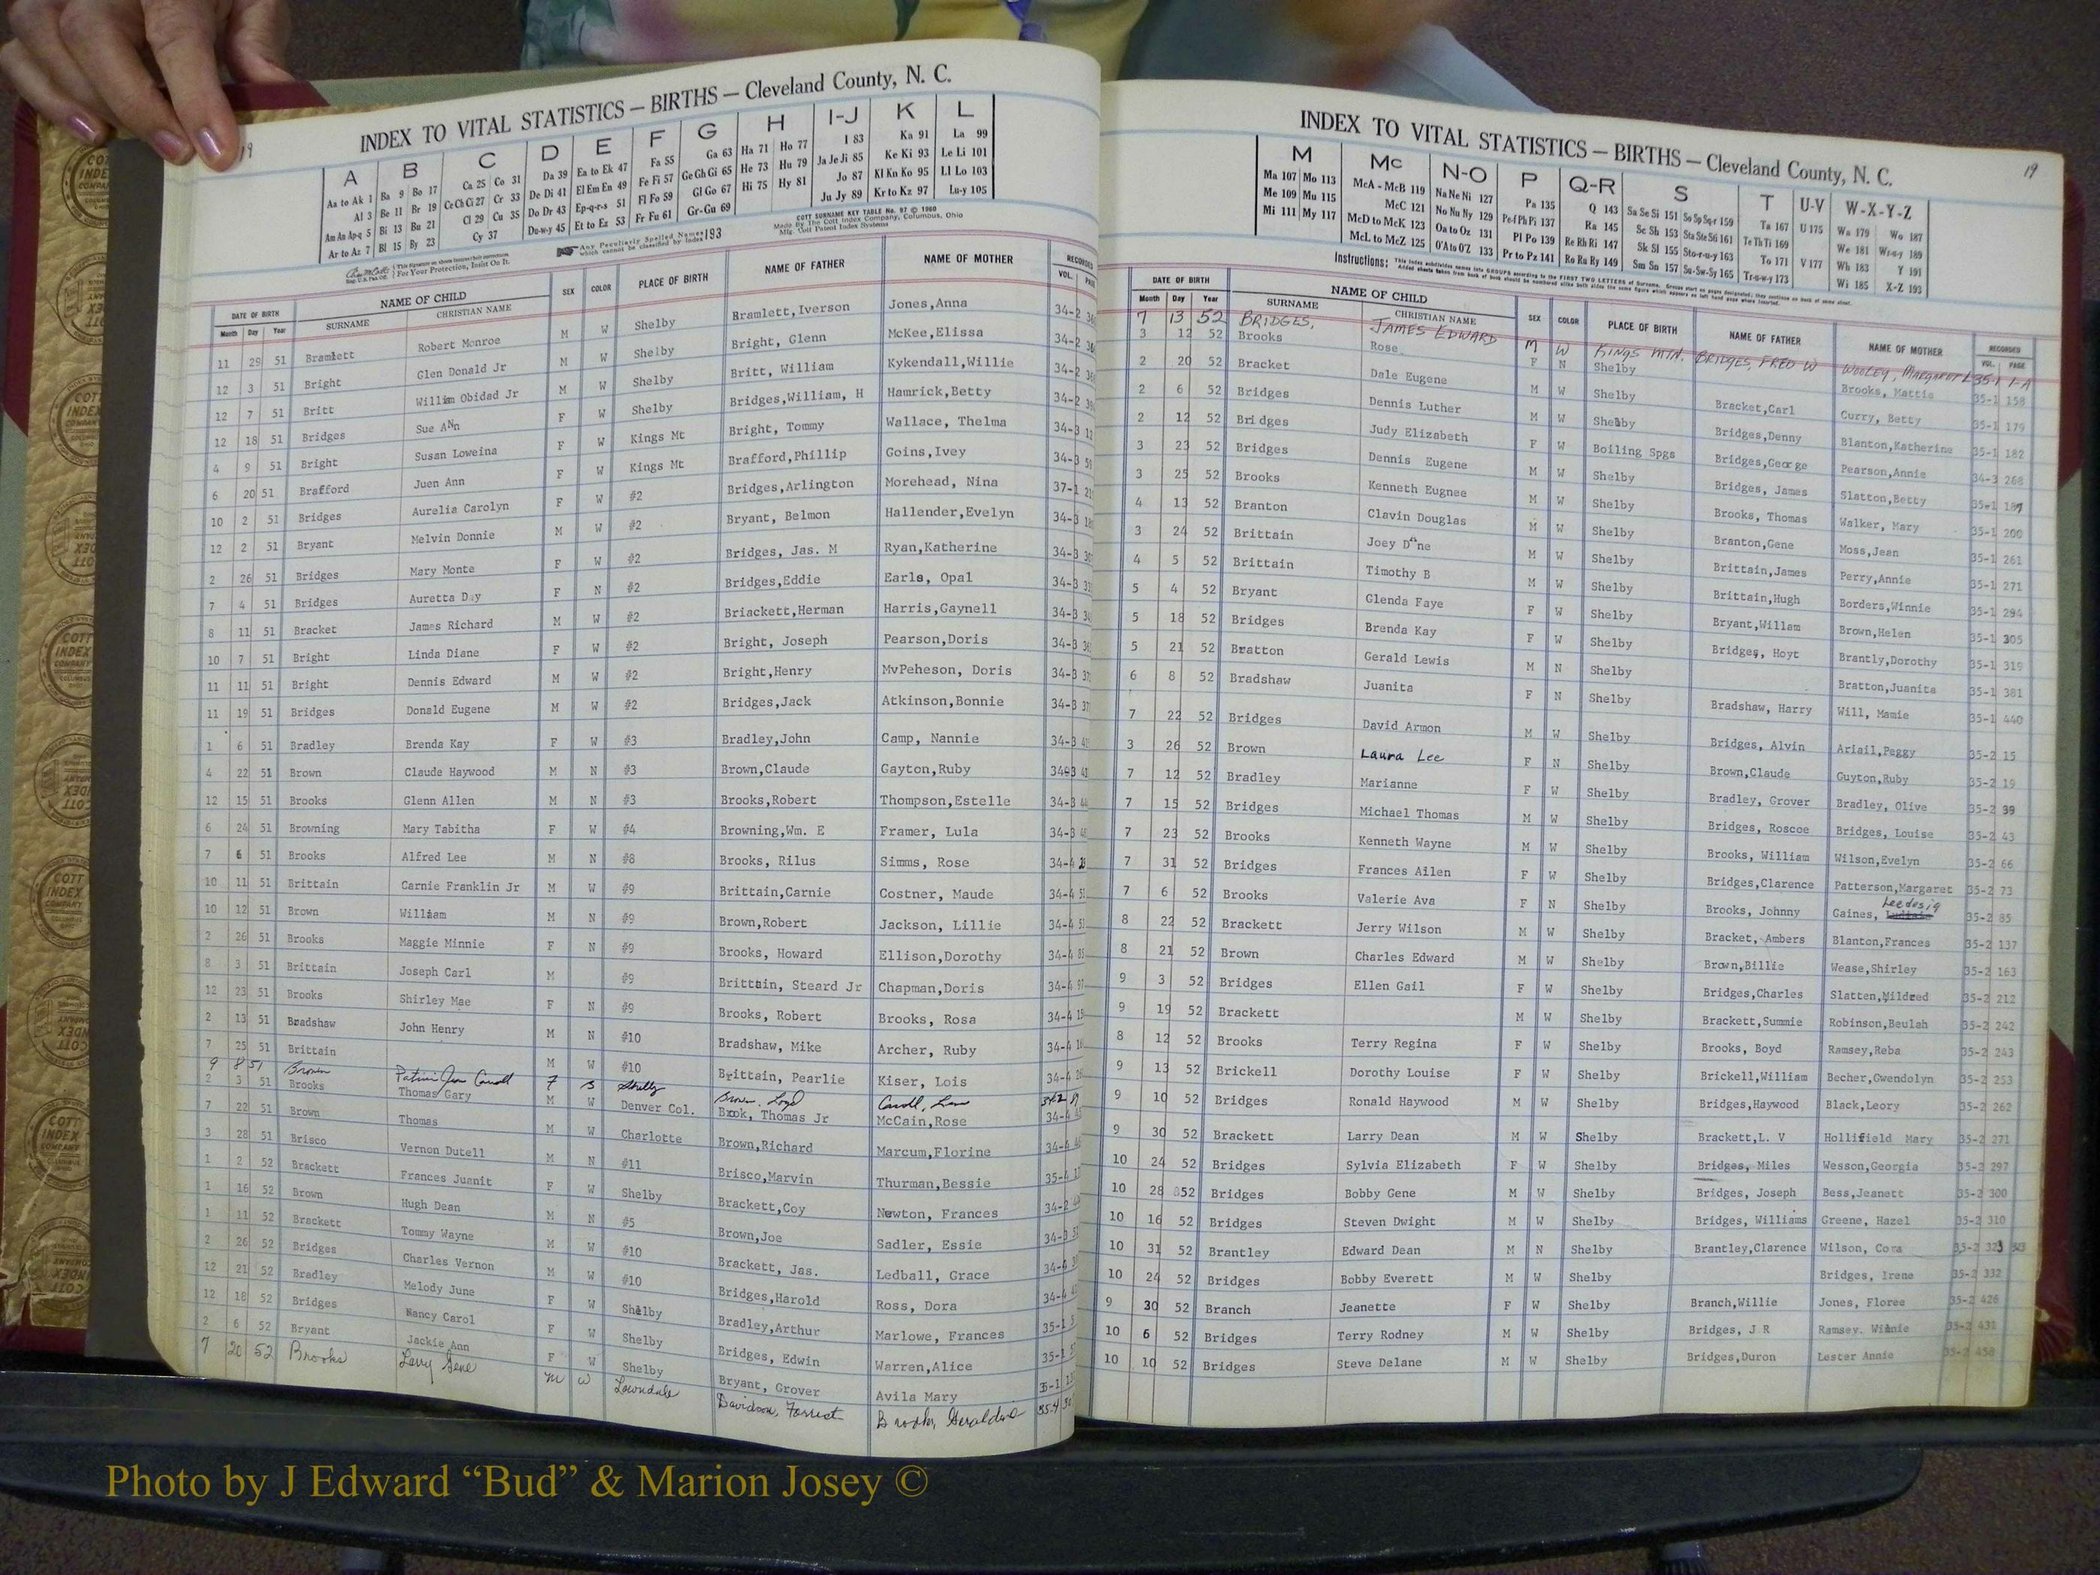 19
INDEX TO VITAL STATISTICS — BIRTHS — Cleveland County, N. C.
A B C D E F G H I-J K L
Aa to Ak 1 Ba 9 Bo 17 Ca 25 Co 31 Da 39 Ea to Ek 47 Fa 55 Ga 63 Ha 71 Ho 77 I 83 Ka 91 La 99
Al 3 Be 11 Br 19 Ce Ch Ci 27 Cr 33 De Di 41 El Em En 49 Fe Fi 57 Ge Gh Gi 65 He 73 Hu 79 Ja Je Ji 85 Ke Ki 93 Le Li 101
Am An Ap-q 5 Bi 13 Bu 21 Cl 29 Cu 35 Do Dr 43 Ep-q-r-s 51 Fl Fo 59 Gl Go 67 Hi 75 Hy 81 Jo 87 Kl Kn Ko 95 Ll Lo 103
Ar to Az 7 Bl 15 By 23 Cy 37 Du-w-y 45 Et to Ez 53 Fr Fu 61 Gr-Gu 69 Ju Jy 89 Kr to Kz 97 Lu-y 105
Any Peculiarly Spelled Names which cannot be classified by Index 193
COTT SURNAME KEY TABLE No. 97 © 1960
Made By The Cott Index Company, Columbus, Ohio
Mfg. Cott Patent Index Systems
For Your Protection, Insist On It.
DATE OF BIRTH NAME OF CHILD SEX COLOR PLACE OF BIRTH NAME OF FATHER NAME OF MOTHER RECORDED
Month Day Year SURNAME CHRISTIAN NAME VOL.
11 29 51 Bramlett Robert Monroe M W Shelby Bramlett, Iverson Jones,Anna 34-2
12 3 51 Bright Glen Donald Jr M W Shelby Bright, Glenn McKee,Elissa 34-2
12 7 51 Britt William Obidad Jr M W Shelby Britt, William Kykendall,Willie 34-2
12 18 51 Bridges Sue Ann F W Shelby Bridges,William, H Hamrick,Betty 34-2
4 9 51 Bright Susan Loweina F W Kings Mt Bright, Tommy Wallace, Thelma 34-3
6 20 51 Brafford Juen Ann F W Kings Mt Brafford,Phillip Goins,Ivey 34-3
10 2 51 Bridges Aurelia Carolyn F W #2 Bridges,Arlington Morehead, Nina 37-1
12 2 51 Bryant Melvin Donnie M W #2 Bryant, Belmon Hallender,Evelyn 34-3
2 26 51 Bridges Mary Monte F W #2 Bridges, Jas. M Ryan,Katherine 34-3
7 4 51 Bridges Auretta Day F N #2 Bridges,Eddie Earls, Opal 34-3
8 11 51 Bracket James Richard M W #2 Briackett,Herman Harris,Gaynell 34-3
10 7 51 Bright Linda Diane F W #2 Bright, Joseph Pearson,Doris 34-3
11 11 51 Bright Dennis Edward M W #2 Bright,Henry MvPeheson, Doris 34-3
11 19 51 Bridges Donald Eugene M W #2 Bridges,Jack Atkinson,Bonnie 34-3
1 6 51 Bradley Brenda Kay F W #3 Bradley,John Camp, Nannie 34-3
4 22 51 Brown Claude Haywood M N #3 Brown,Claude Gayton,Ruby 34-3
12 15 51 Brooks Glenn Allen M N #3 Brooks,Robert Thompson,Estelle 34-3
6 24 51 Browning Mary Tabitha F W #4 Browning,Wm. E Framer, Lula 34-3
7 6 51 Brooks Alfred Lee M N #8 Brooks, Rilus Simms, Rose 34-4
10 11 51 Brittain Carnie Franklin Jr M W #9 Brittain,Carnie Costner, Maude 34-4
10 12 51 Brown William M N #9 Brown,Robert Jackson, Lillie 34-4
2 26 51 Brooks Maggie Minnie F N #9 Brooks, Howard Ellison,Dorothy 34-4
8 3 51 Brittain Joseph Carl M #9 Brittain, Steard Jr Chapman,Doris 34-4
12 23 51 Brooks Shirley Mae F N #9 Brooks, Robert Brooks, Rosa 34-4
2 13 51 Bradshaw John Henry M N #10 Bradshaw, Mike Archer, Ruby 34-4
7 25 51 Brittain M W #10 Brittain, Pearlie Kiser, Lois 34-4
9 8 51 Brown Shelby Brown, Loyd
2 3 51 Brooks Thomas Gary M W Denver Col. Brook, Thomas Jr McCain,Rose 34-4
7 22 51 Brown Thomas M W Charlotte Brown,Richard Marcum,Florine 34-4
3 28 51 Brisco Vernon Dutell M N #11 Brisco,Marvin Thurman,Bessie 35-4
1 2 52 Brackett Frances Juanit F W Shelby Brackett,Coy Newton, Frances 34-2
1 16 52 Brown Hugh Dean M N #5 Brown,Joe Sadler, Essie 34-3
1 11 52 Brackett Tommy Wayne M W #10 Brackett, Jas. Ledball, Grace 34-4
2 26 52 Bridges Charles Vernon M W #10 Bridges,Harold Ross, Dora 34-4
12 21 52 Bradley Melody June F W Shelby Bradley,Arthur Marlowe, Frances 35-1
12 18 52 Bridges Nancy Carol F W Shelby Bridges, Edwin Warren,Alice 35-1
2 6 52 Bryant Jackie Ann F W Shelby Bryant, Grover Avila Mary 35-1
7 20 52 Brooks Larry Gene M W Lawndale Davidson, Forrest Brooks, Geraldine 35-4
19
INDEX TO VITAL STATISTICS — BIRTHS — Cleveland County, N. C.
M Mc N-O P Q-R S T U-V W-X-Y-Z
Ma 107 Mo 113 McA - McB 119 Na Ne Ni 127 Pa 135 Q 143 Sa Se Si 151 So Sp Sq-r 159 Ta 167 U 175 Wa 179 Wo 187
Me 109 Mu 115 McC 121 No Nu Ny 129 Pe-f Ph Pi 137 Ra 145 Sc Sh 153 Sta Ste Sti 161 Te Th Ti 169 We 181 Wr-u-y 189
Mi 111 My 117 McD to McK 123 Oa to Oz 131 Pl Po 139 Re Rh Ri 147 Sk Sl 155 Sto-r-u-y 163 To 171 V 177 Wh 183 Y 191
McL to McZ 125 O'A to O'Z 133 Pr to Pz 141 Ro Ru Ry 149 Sm Sn 157 Su-Sw-Sy 165 Tr-u-w-y 173 Wi 185 X-Z 193
Instructions:
DATE OF BIRTH NAME OF CHILD SEX COLOR PLACE OF BIRTH NAME OF FATHER NAME OF MOTHER RECORDED
Month Day Year SURNAME CHRISTIAN NAME VOL. PAGE
7 13 52 BRIDGES, JAMES EDWARD M W KINGS MTN. BRIDGES, FRED W WOOLEY, MARGARET L 35-1 1-A
3 12 52 Brooks Rose F N Shelby Brooks, Mattie 35-1 158
2 20 52 Bracket Dale Eugene M W Shelby Bracket,Carl Curry, Betty 35-1 179
2 6 52 Bridges Dennis Luther M W Shelby Bridges,Denny Blanton,Katherine 35-1 182
2 12 52 Bridges Judy Elizabeth F W Boiling Spgs Bridges,George Pearson,Annie 34-3 268
3 23 52 Bridges Dennis Eugene M W Shelby Bridges, James Slatton,Betty 35-1 187
3 25 52 Brooks Kenneth Eugnee M W Shelby Brooks, Thomas Walker, Mary 35-1 200
4 13 52 Branton Clavin Douglas M W Shelby Branton,Gene Moss,Jean 35-1 261
3 24 52 Brittain Joey Dane M W Shelby Brittain,James Perry,Annie 35-1 271
4 5 52 Brittain Timothy B M W Shelby Brittain,Hugh Borders,Winnie 35-1 294
5 4 52 Bryant Glenda Faye F W Shelby Bryant,Willam Brown,Helen 35-1 305
5 18 52 Bridges Brenda Kay F W Shelby Bridges, Hoyt Brantly,Dorothy 35-1 319
5 21 52 Bratton Gerald Lewis M N Shelby Bratton,Juanita 35-1 381
6 8 52 Bradshaw Juanita F N Shelby Bradshaw, Harry Will, Mamie 35-1 440
7 22 52 Bridges David Armon M W Shelby Bridges, Alvin Ariail,Peggy 35-2 15
3 26 52 Brown Laura Lee F N Shelby Brown,Claude Guyton,Ruby 35-2 19
7 12 52 Bradley Marianne F W Shelby Bradley, Grover Bradley, Olive 35-2 39
7 15 52 Bridges Michael Thomas M W Shelby Bridges, Roscoe Bridges, Louise 35-2 43
7 23 52 Brooks Kenneth Wayne M W Shelby Brooks, William Wilson,Evelyn 35-2 66
7 31 52 Bridges Frances Ailen F W Shelby Bridges,Clarence Patterson,Margaret 35-2 73
7 6 52 Brooks Valerie Ava F N Shelby Brooks, Johnny Gaines, 35-2 85
8 22 52 Brackett Jerry Wilson M W Shelby Bracket, Ambers Blanton,Frances 35-2 137
8 21 52 Brown Charles Edward M W Shelby Brown,Billie Wease,Shirley 35-2 163
9 3 52 Bridges Ellen Gail F W Shelby Bridges,Charles Slatten,Mildred 35-2 212
9 19 52 Brackett M W Shelby Brackett,Summie Robinson,Beulah 35-2 242
8 12 52 Brooks Terry Regina F W Shelby Brooks, Boyd Ramsey,Reba 35-2 243
9 13 52 Brickell Dorothy Louise F W Shelby Brickell,William Becher,Gwendolyn 35-2 253
9 10 52 Bridges Ronald Haywood M W Shelby Bridges,Haywood Black,Leory 35-2 262
9 30 52 Brackett Larry Dean M W Shelby Brackett,L. V Hollifield Mary 35-2 271
10 24 52 Bridges Sylvia Elizabeth F W Shelby Bridges, Miles Wesson,Georgia 35-2 297
10 28 52 Bridges Bobby Gene M W Shelby Bridges, Joseph Bess,Jeanett 35-2 300
10 16 52 Bridges Steven Dwight M W Shelby Bridges, Williams Greene, Hazel 35-2 310
10 31 52 Brantley Edward Dean M N Shelby Brantley,Clarence Wilson, Cora 35-2 323
10 24 52 Bridges Bobby Everett M W Shelby Bridges, Irene 35-2 332
9 30 52 Branch Jeanette F W Shelby Branch,Willie Jones, Floree 35-2 426
10 6 52 Bridges Terry Rodney M W Shelby Bridges, J R Ramsey. Winnie 35-2 431
10 10 52 Bridges Steve Delane M W Shelby Bridges,Duron Lester Annie 35-2 458
Photo by J Edward “Bud” & Marion Josey ©